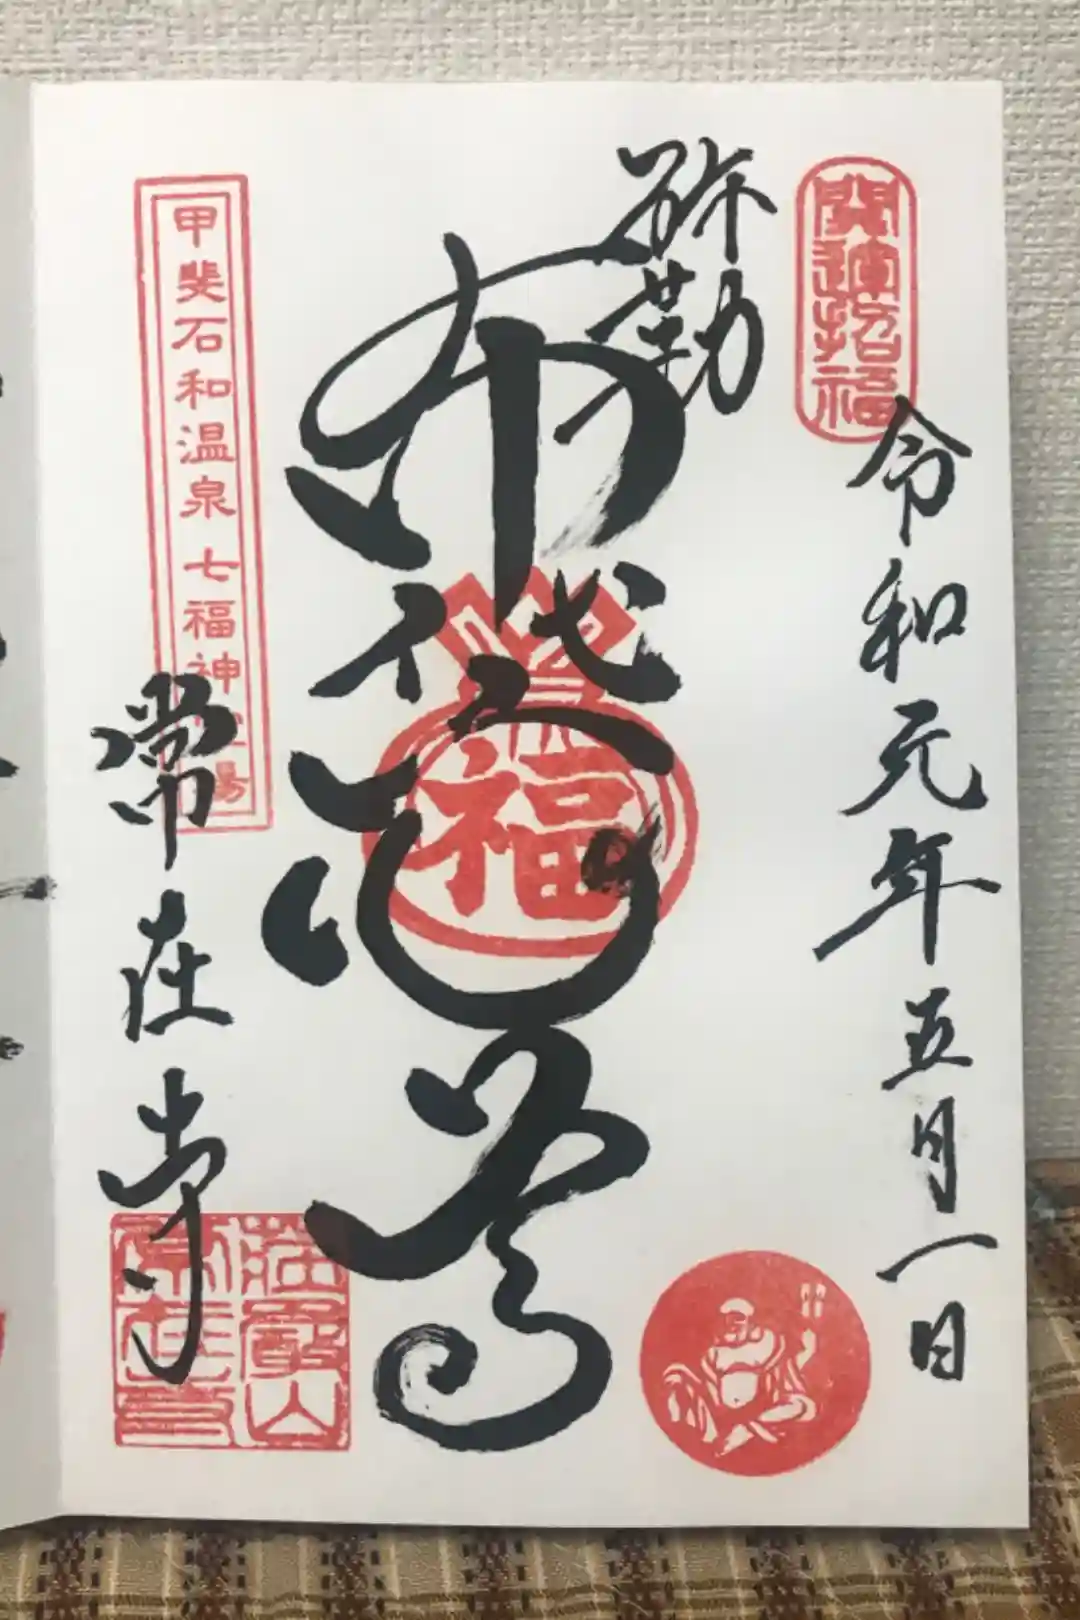 開運招福
令和元年五月一日
弥勒
布袋尊
福
甲斐石和温泉七福神
常在寺